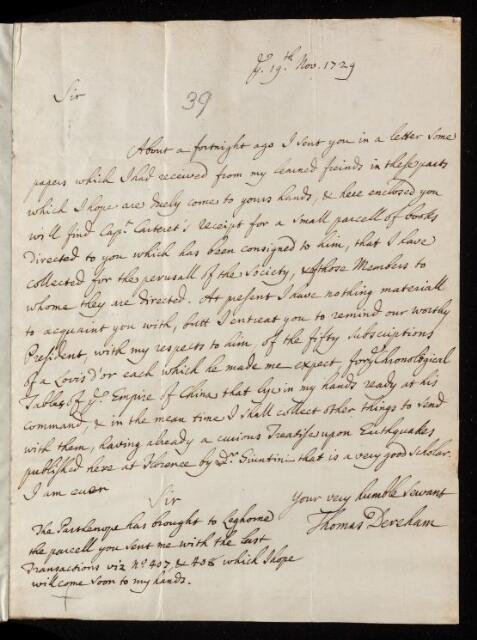 yᵉ. 19ᵗʰ Nov. 1729
Sir
39
About a fortnight ago I sent you in a letter some
papers which I had received from my learned freinds in these parts
which I hope are duely come to yours hands, & here enclosed you
will find Capⁿ. Carteret's receipt for a small parcell of books
directed to you which has been consigned to him, that I have
collected for the perusall of the Society, & of those Members to
whome they are directed. At present I have nothing materiall
to acquaint you with, butt I entreat you to remind our worthy
President with my respects to him, of the fifty subscriptions
of a Lovis d'or each which he made me expect for yᵉ Chronological
Tables of yᵉ. Empire of China that lye in my hands ready at his
command, & in the mean time I shall collect other things to send
with them, having already a curious Treatise upon Earthquakes
published here at Florence by Dʳ. Giuntini that is a very good Scholar.
I am ever
Sir
Your very humble Servant
Thomas Dereham
The Parthenope has brought to Leghorne
the parcell you sent me with the last
Transactions viz Nº 407, & 408 which I hope
will come soon to my hands.